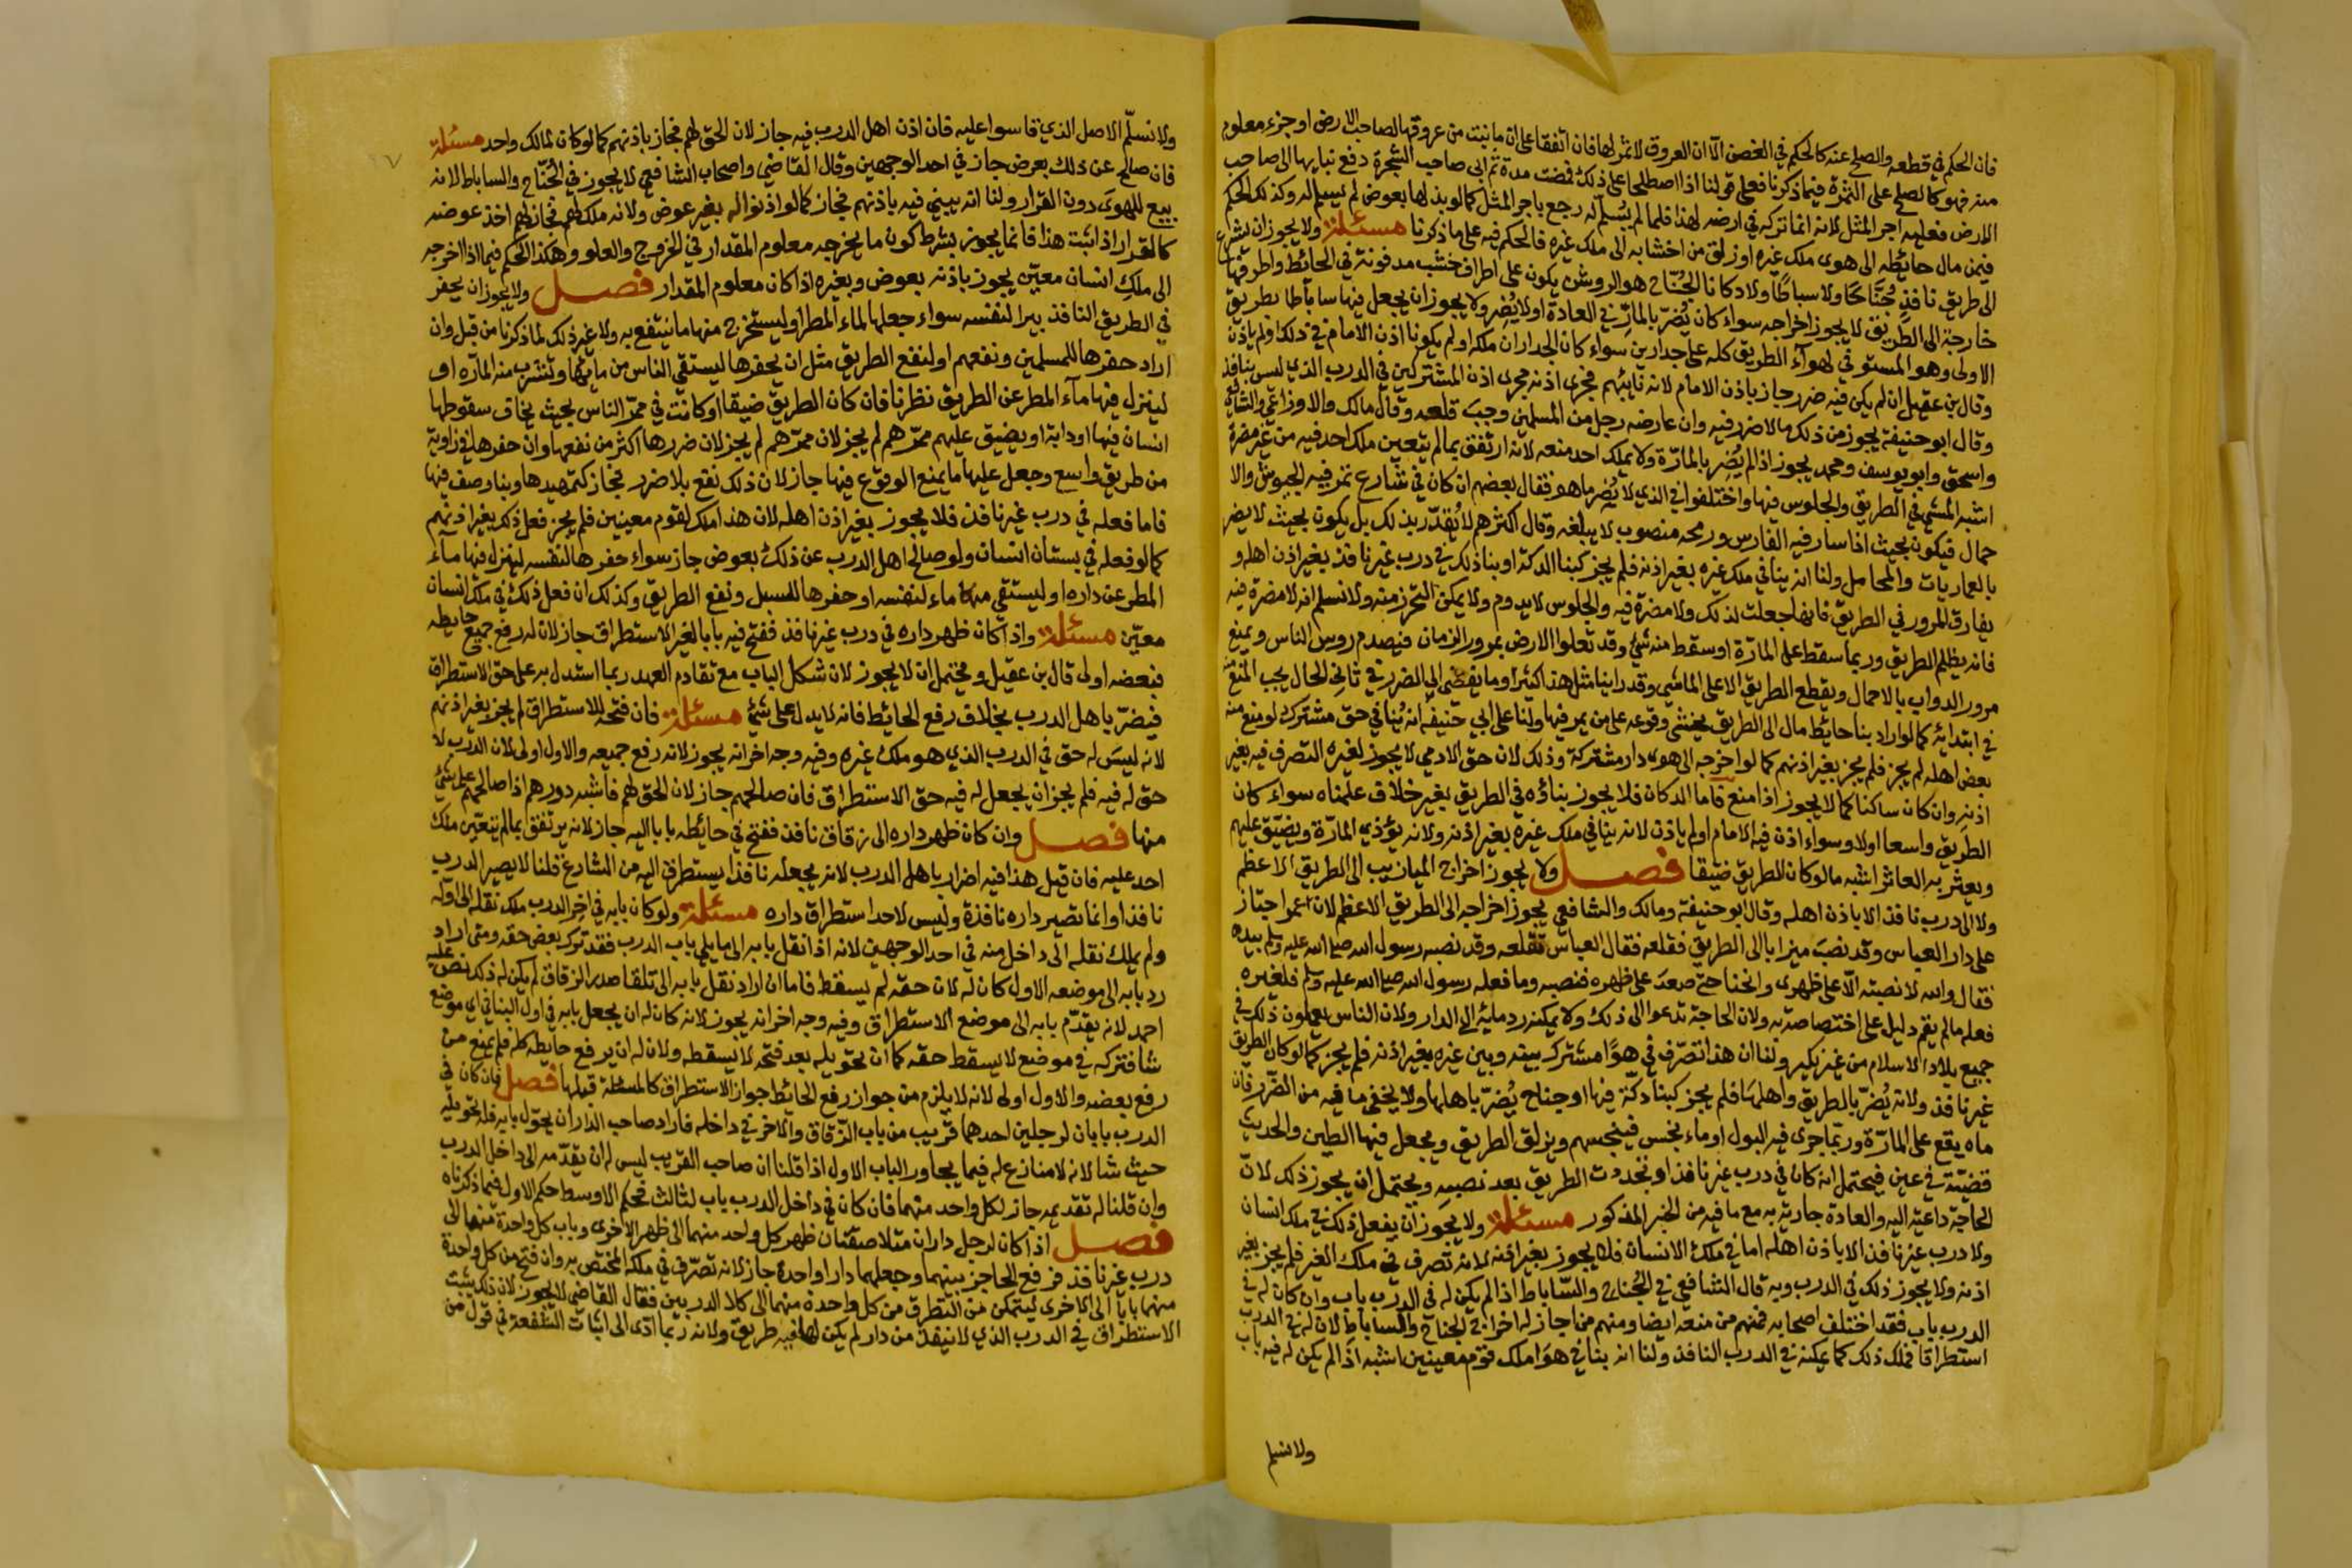 فان الحكم في قطعه والصلح عنه كالحكم في الغصن الا ان العروق لا ثمر لها فان اتفقا على ان ما نبت من عروقها لصاحب الارض او جزء معلوم
منه فهو كالصلح على الثمرة فيما ذكرنا فعلى قولنا اذا اصطلحا على ذلك فمضت مدة ثم ابى صاحب الشجرة دفع نباتها الى صاحب
الارض فعليه اجر المثل لانه انما تركه في ارضه لهذا فلما لم يسلم له رجع باجر المثل كما لو بذلها بعوض لم يسلم له وكذلك الحكم
فيمن مال حائطه الى هوى ملك غيره او زلق من اخشابه الى ملك غيره فالحكم فيه على ما ذكرنا مسئلة ولا يجوز ان يشرع
الى طريق نافذ جناحًا ولا سباطًا ولا دكانا الجناح هو الروشن يكون على اطراف خشب مدفونة في الحائط واطرافها
خارجة الى الطريق لا يجوز اخراجه سواء كان يضر بالمار في العادة او لا يضر ولا يجوز ان يجعل فيها ساباطا بطريق
الاولى وهو المستوفي لهوآء الطريق كله على جدارين سواء كان الجداران ملكه او لم يكونا اذن الامام في ذلك او لم ياذن
وقال بن عقيل ان لم يكن فيه ضرر جاز باذن الامام لانه نايبهم فجرى اذنه مجرى اذن المشتركين في الدرب الذي ليس بنافذ
وقال ابو حنيفة يجوز من ذلك ما لا ضرر فيه وان عارضه رجل من المسلمين وجب قلعه وقال مالك والاوزاعي والشافعي
واسحق وابو يوسف ومحمد يجوز اذا لم يضر بالمارة ولا يملك احد منعه لانه ارتفق بما لم يتعين ملك احد فيه من غير مضرة
اشبه المشي في الطريق والجلوس فيها واختلفوا في الذي لا يضر ما هو فقال بعضهم ان كان في شارع تمر فيه الجيوش والا
حمال فيكون بحيث اذا سار فيه الفارس ورمحه منصوب لا يبلغه وقال اكثرهم لا يقدر بذلك بل يكون بحيث لا يضر
بالعماريات والمحامل ولنا انه بنا في ملك غيره بغير اذنه فلم يجز كبنا الدكة او بنا ذلك في درب غير نافذ بغير اذن اهله و
يفارق المرور في الطريق فانها جعلت لذلك ولا مضرة فيه والجلوس لا يدوم ولا يمكن التحرز منه ولا نسلم انه لا مضرة فيه
فانه يظلم الطريق وربما سقط على المارة او سقط منه شئ وقد تعلوا الارض بمرور الزمان فيصدم روس الناس ويمنع
مرور الدواب بالاحمال ويقطع الطريق الا على الماشي وقد راينا مثل هذا كثيرا وما يفضي الى الضرر في ثاني الحال يجب المنع منه
في ابتدائه كما لو اراد بنا حايط مال الى الطريق يخشى وقوعه على من يمر فيها ولنا على ابي حنيفه انه بنا في حق مشترك لو منع منه
بعض اهله لم يجز فلم يجز بغير اذنهم كما لو اخرجه الى هوى دار مشتركة وذلك لان حق الادمي لا يجوز لغيره التصرف فيه بغير
اذنه وان كان ساكنا كما لا يجوز اذا منع فاما الدكان فلا يجوز بناؤه في الطريق بغير خلاف علمناه سواء كان
الطريق واسعا اولا وسواء اذن فيه الامام او لم ياذن لانه بنا في ملك غيره بغير اذنه ولانه يؤذي المارة ويضيق عليهم
ويعثر به العاثر اشبه ما لو كان الطريق ضيقا فصل ولا يجوز اخراج الميازيب الى الطريق الاعظم
ولا الى درب نافذ الا باذن اهله وقال ابو حنيفة ومالك والشافعي يجوز اخراجه الى الطريق الاعظم لان عمر اجتاز
على دار العباس وقد نصب ميزابا الى الطريق فقلعه فقال العباس تقلعه وقد نصبه رسول الله صلى الله عليه وسلم بيده
فقال والله لا نصبته الا على ظهري وانحنا حتى صعد على ظهره فنصبه وما فعله رسول الله صلى الله عليه وسلم فلغيره
فعله ما لم يقم دليل على اختصاصه به ولان الحاجة تدعوا الى ذلك ولا يمكنه رد مائه الى الدار ولان الناس يعملون ذلك في
جميع بلاد الاسلام من غير نكير ولنا ان هذا تصرف في هواً مشترك بينه وبين غيره بغير اذنه فلم يجز كما لو كان الطريق
غير نافذ ولانه يضر بالطريق واهلها فلم يجز كبنا دكة فيها او جناح يضر باهلها ولا يخفى ما فيه من الضرر فان
ماه يقع على المارة وربما جرى فيه البول او ماء نجس فينجسهم ويزلق الطريق ويجعل فيها الطين والحديث
قضية في عين فيحتمل انه كان في درب غير نافذ او تجددت الطريق بعد نصبه ويحتمل ان يجوز ذلك لان
الحاجة داعية اليه والعادة جارية به مع ما فيه من الخبر المذكور مسئلة ولا يجوز ان يفعل ذلك في ملك انسان
ولا درب غير نافذ الا باذن اهله اما في ملك الانسان فلا يجوز بغير اذنه لانه تصرف في ملك الغير فلم يجز بغير
اذنه ولا يجوز ذلك في الدرب وبه قال الشافعي في الجناح والساباط اذا لم يكن له في الدرب باب وان كان له في
الدرب باب فقد اختلف اصحابه فمنهم من منعه ايضا ومنهم من اجاز له اخراج الجناح والساباط لان له في الدرب
استطراقا فملك ذلك كما يمكنه في الدرب النافذ ولنا انه بنا في هوا ملك قوم معينين اشبه اذا لم يكن له فيه باب
ولا نسلم
ولا نسلم الاصل الذي قاسوا عليه فان اذن اهل الدرب فيه جاز لان الحق لهم فجاز باذنهم كما لو كان لمالك واحد مسئلة
فان صالح عن ذلك بعوض جاز في احد الوجهين وقال القاضي واصحاب الشافعي لا يجوز في الجناح والساباط لانه
بيع للهوى دون القرار ولنا انه يبني فيه باذنهم فجاز كما لو اذنوا له بغير عوض ولانه ملك لهم فجاز لهم اخذ عوضه
كالقرار اذا ثبت هذا فانما يجوز بشرط كون ما يخرجه معلوم المقدار في الخروج والعلو وهكذا الحكم فيما اذا اخرجه
الى ملك انسان معين يجوز باذنه بعوض وبغيره اذا كان معلوم المقدار فصل ولا يجوز ان يحفر
في الطريق النافذ بيرا لنفسه سواء جعلها لماء المطر او ليستخرج منها ما ينتفع به ولا غير ذلك لما ذكرنا من قبل وان
اراد حفرها للمسلمين ونفعهم او لنفع الطريق مثل ان يحفرها ليستقي الناس من مائها وتشرب منه المارة او
لينزل فيها مآء المطر عن الطريق نظرنا فان كان الطريق ضيقا او كانت في ممر الناس بحيث يخاف سقوطها
انسان فيها او دابة او يضيق عليهم ممرهم لم يجز لان ممرهم لم يجز لان ضررها اكثر من نفعها وان حفرها في زاوية
من طريق واسع وجعل عليها ما يمنع الوقوع فيها جاز لان ذلك نفع بلا ضرر فجاز كتمهيدها وبنا رصف فيها
فاما فعله في درب غير نافذ فلا يجوز بغير اذن اهله لان هذا ملك لقوم معينين فلم يجز فعل ذلك بغير اذنهم
كما لو فعله في بستان انسان ولو صالح اهل الدرب عن ذلك بعوض جاز سواء حفرها لنفسه لينزل فيها مآء
المطر عن داره او ليستقي منها ماء لنفسه او حفرها للسبيل ونفع الطريق وكذلك ان فعل ذلك في ملك انسان
معين مسئلة واذا كان ظهر داره في درب غير نافذ ففتح فيه بابا لغير الاستطراق جاز لان له رفع جميع حايطه
فبعضه اولى قال بن عقيل ويحتمل ان لا يجوز لان شكل الباب مع تقادم العهد ربما استدل به على حق الاستطراق
فيضر باهل الدرب بخلاف رفع الحائط فانه لا يدل على شئ مسئلة فان فتحه للاستطراق لم يجز بغير اذنهم
لانه ليس له حق في الدرب الذي هو ملك غيره وفيه وجه اخر انه يجوز لانه رفع جميعه والاول اولى لان الدرب لا
حق له فيه فلم يجز ان يجعل له فيه حق الاستطراق فان صالحهم جاز لان الحق لهم فاشبه دورهم اذا صالحهم على شئ
منها فصل وان كان ظهر داره الى زقاق نافذ ففتح في حائطه بابا اليه جاز لانه يرتفق بما لم يتعين ملك
احد عليه فان قيل هذا فيه اضرار باهل الدرب لانه يجعله نافذا يستطرق اليه من الشارع قلنا لا يصير الدرب
نافذا وانما تصير داره نافذة وليس لاحد استطراق داره مسئلة ولو كان بابه في اخر الدرب ملك نقله الى اوله
ولم يملك نقله الى داخل منه في احد الوجهين لانه اذا نقل بابه الى ما يلي باب الدرب فقد ترك بعض حقه ومتى اراد
رد بابه الى موضعه الاول كان له لان حقه لم يسقط فاما ان اراد نقل بابه الى تلقا صدر الزقاق لم يكن له ذلك نص عليه
احمد لانه يقدم بابه الى موضع الاستطراق وفيه وجه اخر انه يجوز لانه كان له ان يجعل بابه في اول البنا في اي موضع
شا فتركه في موضع لا يسقط حقه كما ان تحويله بعد فتحه لا يسقطه ولان له ان يرفع حايطه كله فلم يمنع من
رفع بعضه والاول اولى لانه لا يلزم من جواز رفع الحائط جواز الاستطراق كالمسئلة قبلها فصل فان كان في
الدرب بابان لرجلين احدهما قريب من باب الزقاق والاخر في داخله فاراد صاحب الدار ان يحول بابه فله تحويله
حيث شا لانه لا منازع له فيما يجاور الباب الاول اذا قلنا ان صاحب القريب ليس له ان يقدمه الى داخل الدرب
وان قلنا له تقديمه جاز لكل واحد منهما فان كان في داخل الدرب باب لثالث فحكم الاوسط حكم الاول فيما ذكرناه
فصل اذا كان لرجل داران متلاصقتان ظهر كل واحد منهما الى ظهر الاخرى وباب كل واحدة منها الى
درب غير نافذ فرفع الحاجز بينهما وجعلهما دارا واحدة جاز لانه تصرف في ملكه المختص به وان فتح من كل واحدة
منهما بابا الى الاخرى ليتمكن من التطرق من كل واحدة منهما الى كلا الدربين فقال القاضي لا يجوز لان ذلك يثبت
الاستطراق في الدرب الذي لا ينفذ من دار لم يكن لها فيه طريق ولانه ربما ادى الى اثبات الشفعة في قول من